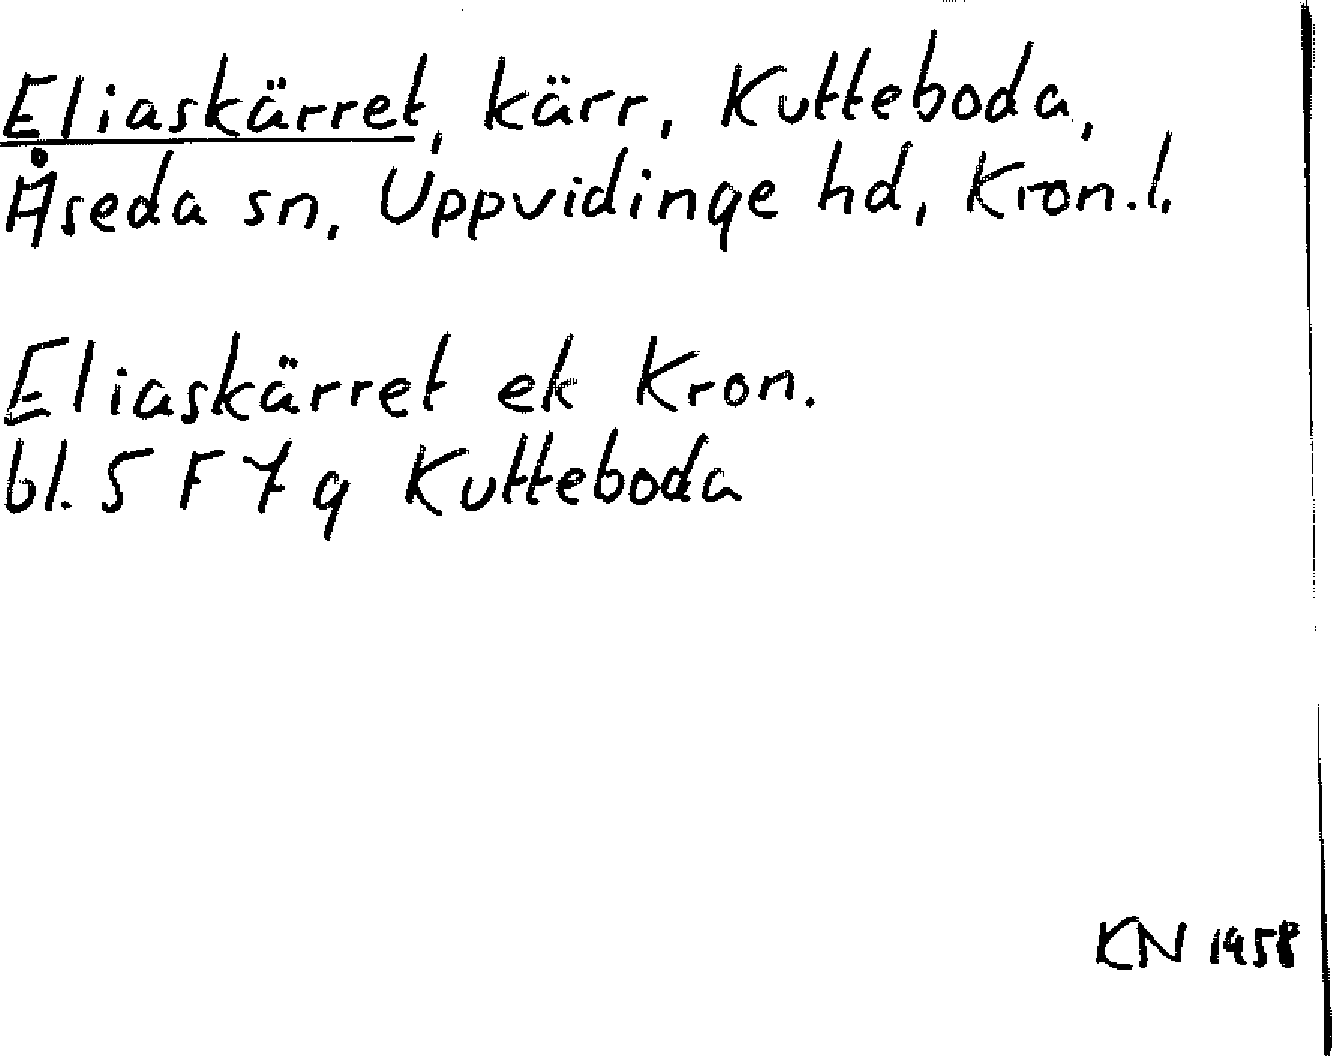 Eliaskärret, kärr, Kutteboda,
Åseda sn, Uppvidinge hd, Kron.l.
Eliaskärret ek Kron.
bl. 5 F 7 g Kutteboda
KN 1958